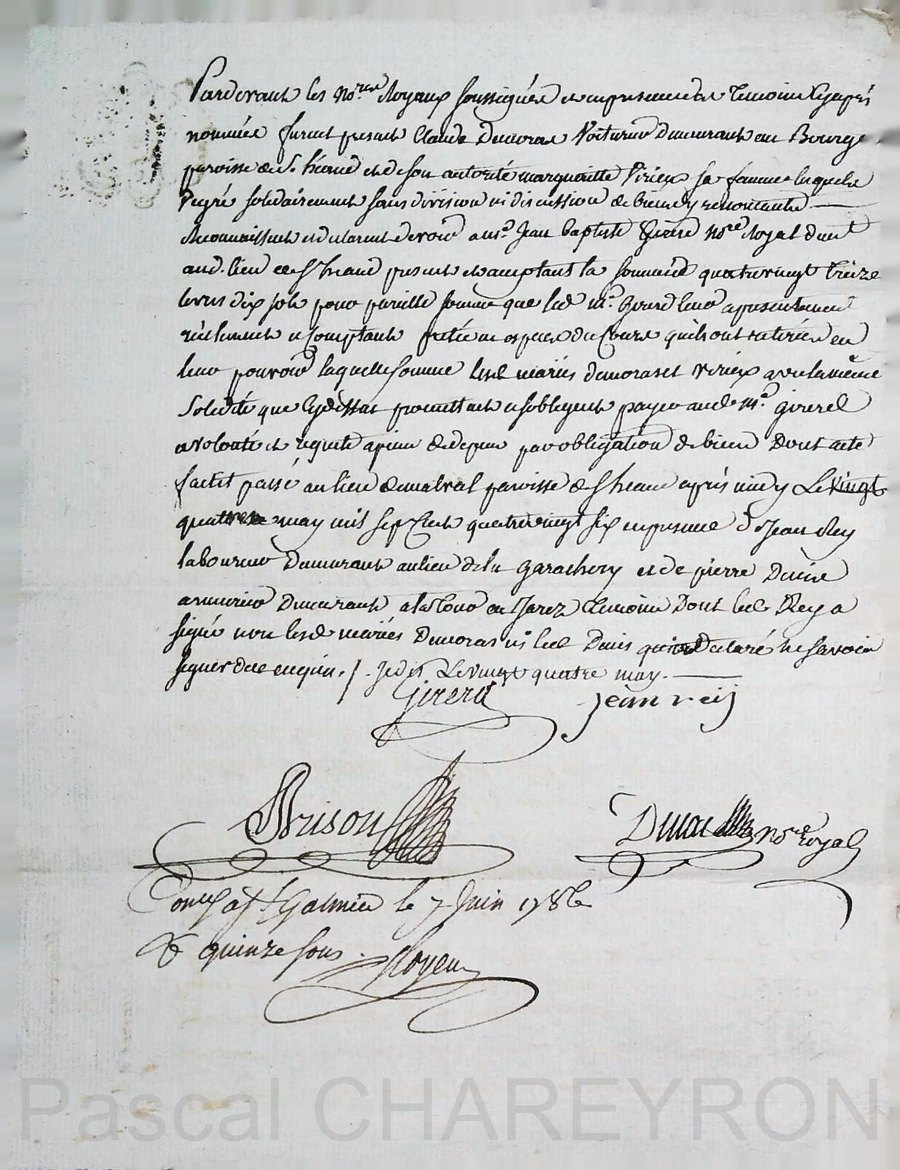 Pardevant les no.res Royaux soussignés et en presence des temoins cy apres
nommés furent presant Claude Dumoras Voiturier demeurant au Bourg
paroisse de St. heand et de son autorité margueritte Virieux sa femme laquelle
de gré solidairement sans division ni discussion de biens y renonçante
Reconnaissent et declarent devoir a m.e Jean baptiste Girerd no.re Royal demt
aud. lieu de St. heand presant et acceptant la somme de quatrevingt treize
livres dix sols pour pareille somme que led m.e Girerd leur a presentement
réelement et comptant prêté en especes du Cours qu'ils ont retirées en
leur pouvoir laquelle somme lesd. mariés dumoras et Virieux avec la même
Solidité que cydessus promettent et s'obligent payer aud. M.e girerd
a volonté et requête a peine de depens par obligation de biens Dont acte
fait et passé au lieu de malval paroisse de St heand après midy Le vingt
quatre may mil sept Cent quatrevingt six en presence de Jean Rey
laboureur Demeurant au lieu de la garachery et de pierre Denis
armurier Demeurant a la tour en Jarez temoins Dont led. Rey a
signé non lesd. mariés Dumoras ni led. Denis qui ont declaré ne savoir
signer de ce enquis ./. Je dis Le vingt quatre may.
Girerd Jean reij
Brison no.re Royal
Con.lé a St Galmier le 7 Juin 1786
quinze sous.
Pascal CHAREYRON